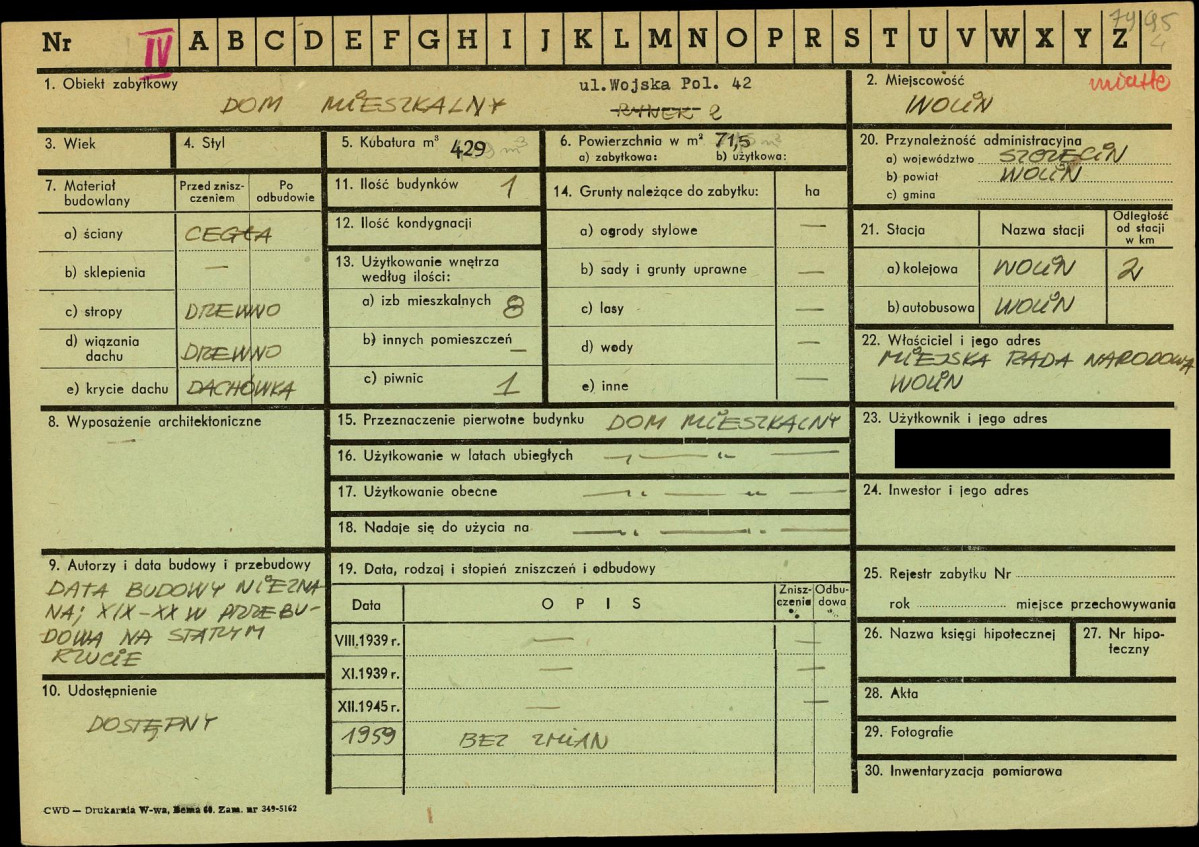 Nr IV A B C D E F G H I J K L M N O P R S T U V W X Y Z
1. Obiekt zabytkowy
ul. Wojska Pol. 42
DOM MIESZKALNY
RYNEK 2
2. Miejscowość
miasto
WOLIN
3. Wiek
4. Styl
5. Kubatura m³ 429
6. Powierzchnia w m² 71,5
a) zabytkowa: b) użytkowa:
20. Przynależność administracyjna
a) województwo SZCZECIN
b) powiat WOLIN
c) gmina
7. Materiał budowlany
Przed zniszczeniem
Po odbudowie
a) ściany CEGŁA
b) sklepienia —
c) stropy DREWNO
d) wiązania dachu DREWNO
e) krycie dachu DACHÓWKA
11. Ilość budynków 1
12. Ilość kondygnacji
13. Użytkowanie wnętrza według ilości:
a) izb mieszkalnych 8
b) innych pomieszczeń —
c) piwnic 1
14. Grunty należące do zabytku: ha
a) ogrody stylowe —
b) sady i grunty uprawne —
c) lasy —
d) wody —
e) inne —
21. Stacja
Nazwa stacji
Odległość od stacji w km
a) kolejowa WOLIN 2
b) autobusowa WOLIN
22. Właściciel i jego adres
MIEJSKA RADA NARODOWA
WOLIN
8. Wyposażenie architektoniczne
—
15. Przeznaczenie pierwotne budynku DOM MIESZKALNY
16. Użytkowanie w latach ubiegłych — „ — „ —
17. Użytkowanie obecne — „ — „ —
18. Nadaje się do użycia na — „ — „ —
23. Użytkownik i jego adres
24. Inwestor i jego adres
9. Autorzy i data budowy i przebudowy
DATA BUDOWY NIEZNA
NA; XIX-XX W PRZEBU-
DOWA NA STARYM
RZUCIE
10. Udostępnienie
DOSTĘPNY
19. Data, rodzaj i stopień zniszczeń i odbudowy
Data
OPIS
Zniszczenia %
Odbudowa %
VIII.1939 r. — —
XI.1939 r. — —
XII.1945 r. — —
1959 BEZ ZMIAN
25. Rejestr zabytku Nr
rok miejsce przechowywania
26. Nazwa księgi hipotecznej
27. Nr hipoteczny
28. Akta
29. Fotografie
30. Inwentaryzacja pomiarowa
CWD — Drukarnia W-wa, Bema 60. Zam. nr 349-5162